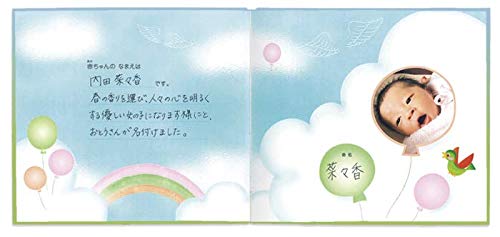 赤ちゃんの なまえは
内田 菜々香 です。
春の香りを運び、人々の心を明るく
する優しい女の子になります様にと、
おとうさんが名付けました。
命名
菜々香